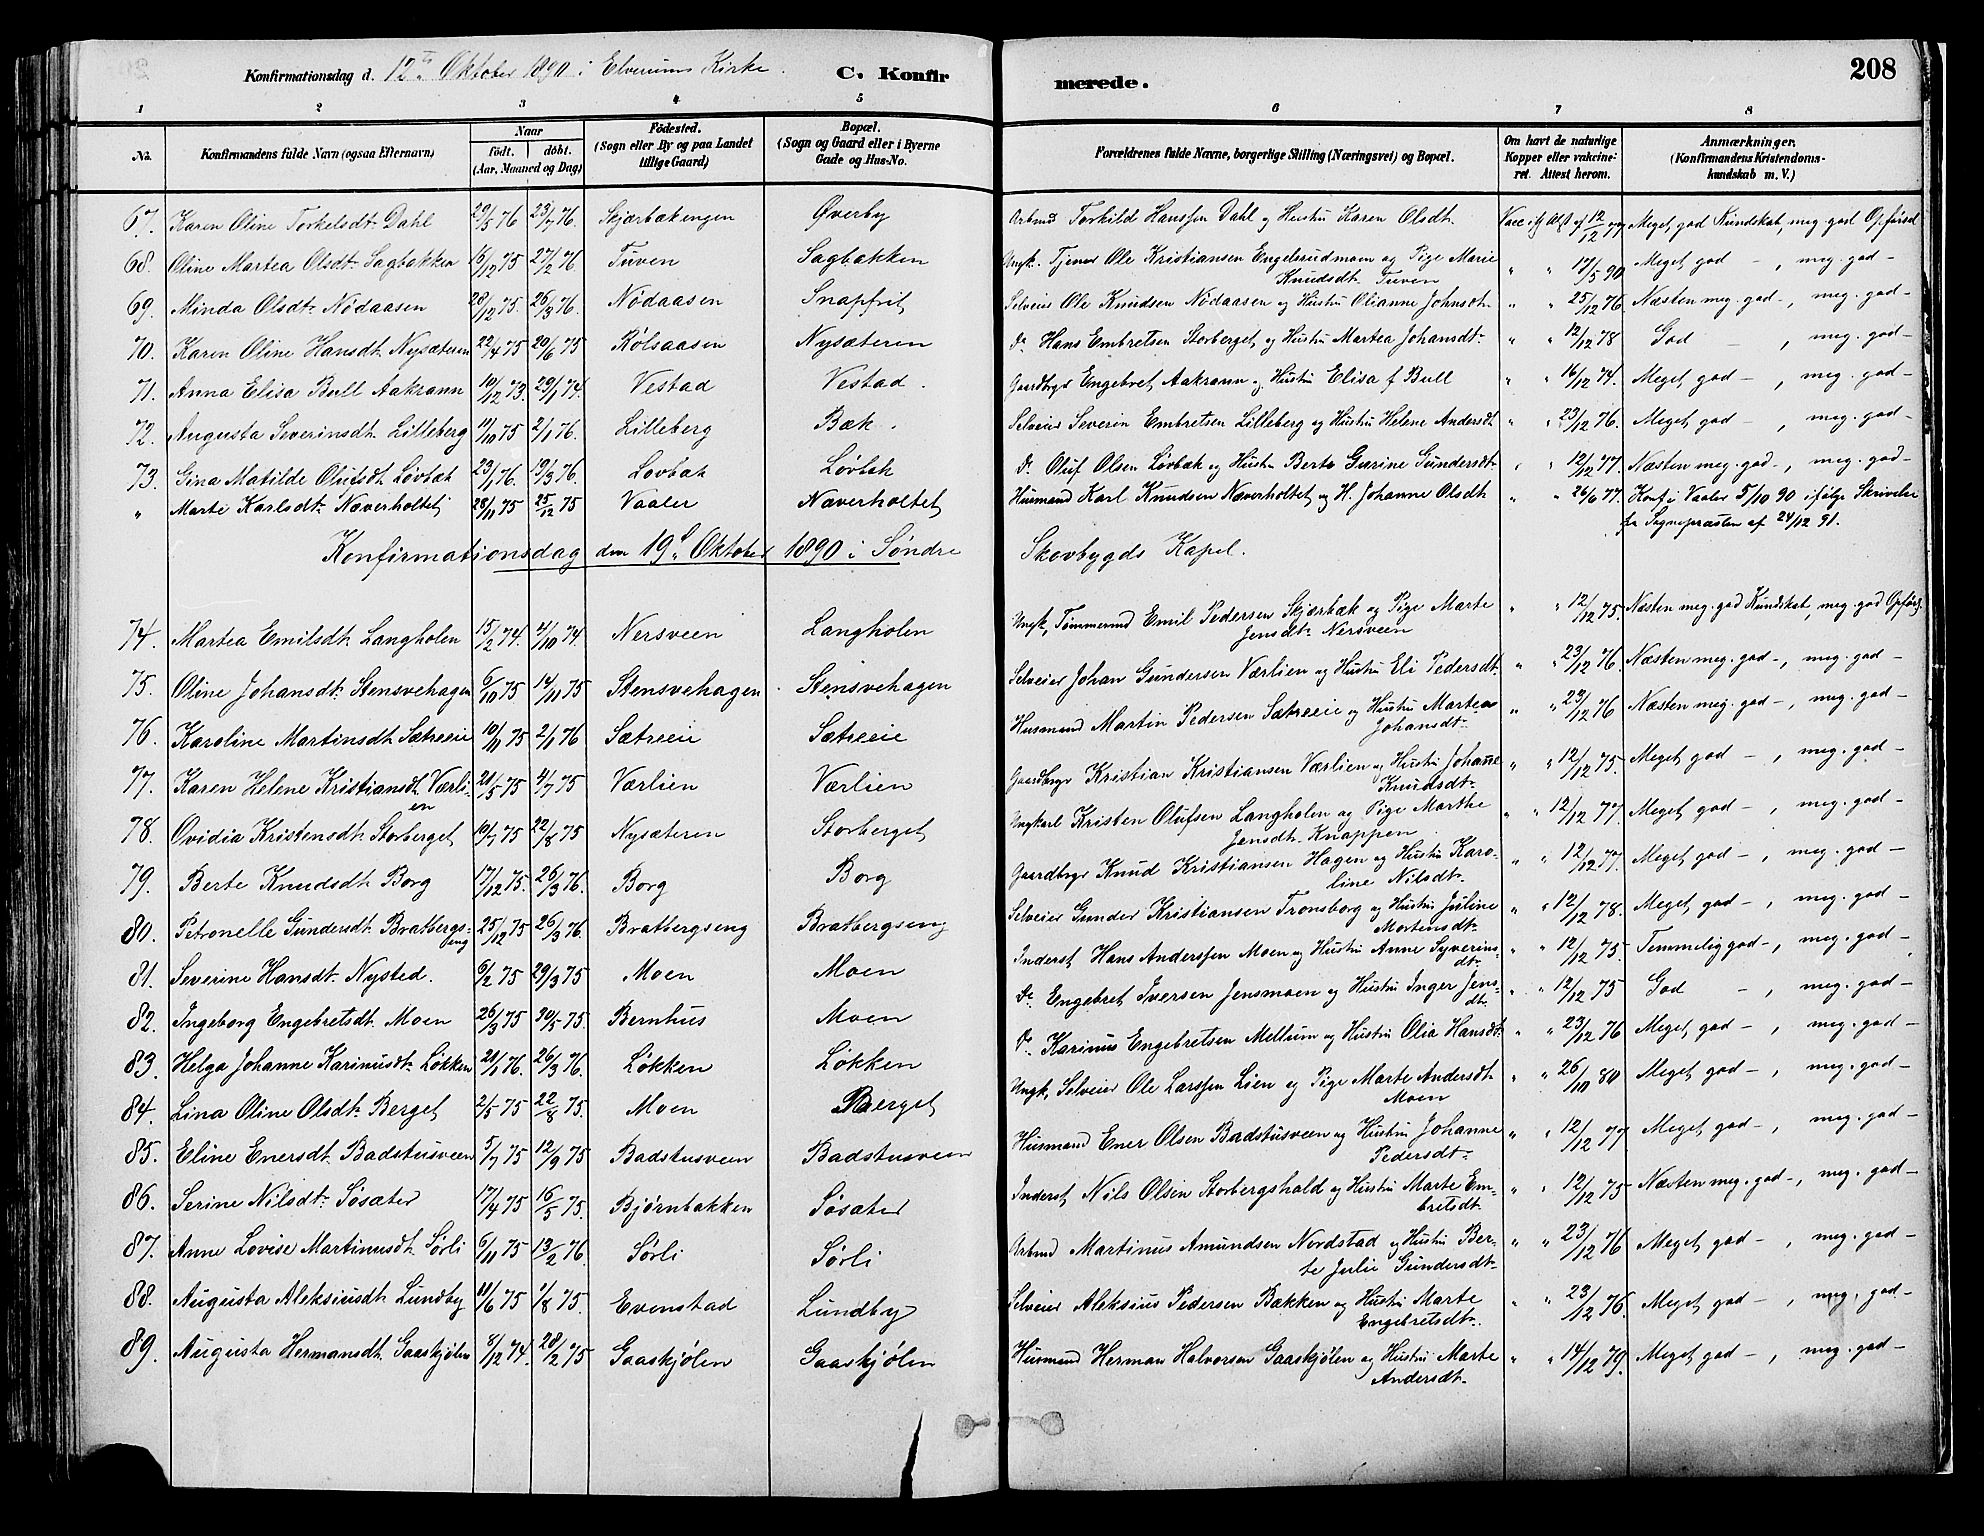 Konfirmationsdag d. 12te Oktober 1890 i Elverums Kirke. C. Konfirmerede. 208
1 2 3 4 5 6 7 8
No. Konfirmandens fulde Navn (ogsaa Efternavn) Naar født. døbt. (Aar, Maaned og Dag) Fødested. (Sogn eller By og paa Landet tillige Gaard) Bopæl. (Sogn og Gaard eller i Byerne Gade og Hus-No. Forældrenes fulde Navne, borgerlige Stilling (Næringsvei) og Bopæl. Om havt de naturlige Kopper eller vakcineret. Attest herom. Anmærkninger. (Konfirmandens Kristendomskundskab m. V.)
67. Karen Oline Torkelsdt. Dahl 29/5 76 23/7 76. Skjærbækengen Øverby Arbmd Torkilde Hanssen Dahl og Hustru Karen Olsdt. Vacc. ifg Att af 12/12 77 Meget god Kundskab, meg. god Opførsel
68. Oline Martea Olsdt. Sagbakken 16/12 75 27/2 76. Tuven Sagbakken Ungk. Tjener Ole Kristiansen Engelsrudmoen og Pige Marie Knudsdt. Tuven " " 17/5 90 Meget god -, meg. god -
69. Minda Olsdt. Nödaasen 28/12 75. 26/3 76. Nödaasen Snapfrit Selveier Ole Knudsen Nödaasen og Hustru Olianne Johnsdt. " " 25/12 76 Næsten meg. god -, meg. god -
70. Karen Oline Hansdt. Nysæteren 22/4 75 20/6 75 Rölsaasen Nysæteren Do. Hans Embretsen Storberget og Hustru Martea Johansdt. " " 12/12 78 God -, meg. god -
71. Anna Elisa Bull Aakrann 10/12 73. 29/1 74. Vestad Vestad. Gaardbrgr Engebret Aakrann og Hustru Elisa f. Bull " " 16/12 74. Meget god -, meg. god -
72. Augusta Severinsdt. Lilleberg 11/10 75 2/1 76. Lilleberg Bæk. Selveier Severin Embretsen Lilleberg og Hustru Helene Andersdt " " 23/12 76. Meget god -, meg. god -
73. Gina Matilde Olufsdt. Lövbæk 23/1 76. 19/3 76. Lovbæk Lövbæk Do. Oluf Olsen Lövbæk og Hustru Berte Gurine Gundersdt. " " 12/12 77. Næsten meg. god -, meg. god -
" Marte Karlsdt. Næverholtet 28/11 75 25/12 75 Vaaler Næverholtet Husmand Karl Knudsen Næverholtet og H. Johanne Olsdt " " 26/6 77. Konf. i Vaaler 5/10 90 ifølge Skrivelse fra Sognepræsten af 24/12 91.
Konfirmationsdag den 19de Oktober 1890 i Søndre Skovbygds Kapel.
74. Martea Emilsdt. Langholen 15/2 74. 4/10 74. Nersveen Langholen Ungk. Tømmermd Emil Pedersen Skjærbæk og Pige Marte Jensdt. Nersveen " " 12/12 75. Næsten meg. god Kundskab, meg. god Opførs.
75. Oline Johansdt. Stensvehagen 6/10 75 14/11 75 Stensvehagen Stensvehagen Selveier Johan Gundersen Værlien og Hustru Eli Pedersdt. " " 23/12 76. Næsten meg. god -, meg. god -
76. Karoline Martinsdt. Sætreeie 10/11 75 2/1 76 Sætreeie Sætreeie Husmand Martin Pedersen Sætreeie og Hustru Martea Johansdt. " " 23/12 76 Næsten meg. god -, meg. god -
77. Karen Helene Kristiansdt. Værlien 21/5 75 4/7 75 Værlien Værlien Gaardbrgr Kristian Kristiansen Værlien og Hustru Johanne Knudsdt. " " 12/12 75. Meget god -, meg. god -
78. Ovidia Kristensdt. Storberget 10/7 75 22/8 75 Nysæteren Storberget Ungkarl Kristen Olufsen Langholen og Pige Marthe Jensdt. Knappen " " 12/12 77. Meget god -, meg. god -
79. Berte Knudsdt. Borg 17/12 75. 26/3 76. Borg Borg Gaardbrgr Knud Kristiansen Hagen og Hustru Karoline Nilsdt. " " 12/12 77. Meget god -, meg. god -
80. Petronelle Gundersdt. Bratbergseng 25/12 75 26/3 76. Bratbergseng Bratbergseng Selveier Gunder Kristiansen Tronsborg og Hustru Juline Mortensdt. " " 12/12 78. Meget god -, meg. god -
81. Severine Hansdt. Nysted. 6/2 75 29/3 75 Moen Moen Inderst Hans Anderssen Moen og Hustru Anne Syverinsdt. " " 12/12 75. Temmelig god -, meg. god -
82. Ingeborg Engebretsdt. Moen 26/3 75 30/5 75. Bernhus Moen Do. Engebret Iversen Jensmoen og Hustru Inger Jensdt. " " 12/12 75 God -, meg. god -
83. Helga Johanne Karinusdt. Løkken 21/1 76. 26/3 76. Løkken Løkken Do. Karinus Engebretsen Mellum og Hustru Olia Hansdt. " " 23/12 76 Meget god -, meg. god -
84. Lina Oline Olsdt. Berget 2/5 75 22/8 75. Moen Berget Ungk. Selveier Ole Larssen Lien og Pige Marte Andersdt. Moen " " 26/10 80 Meget god -, meg. god -
85. Eline Enersdt. Badstusveen 5/7 75 12/9 75 Badstusveen Badstusveen Husmand Ener Olsen Badstusveen og Hustru Johanne Pedersdt. " " 12/12 77 Meget god -, meg. god -
86. Serine Nilsdt. Søsæter 17/4 75 16/5 75. Bjørnbakken Søsæter Inderst Nils Olsen Storbergshald og Hustru Marte Embretsdt. " " 12/12 75 Næsten meg. god -, meg. god -
87. Anne Lovise Martinusdt. Sørli 6/11 75 13/2 76. Sørli Sørli Arbmd Martinus Amundsen Nordstad og Hustru Berte Julie Gundersdt. " " 23/12 76 Meget god -, meg. god -
88. Augusta Aleksiusdt. Lundby 11/6 75 1/8 75. Evenstad Lundby Selveier Aleksius Pedersen Bækken og Hustru Marte Engebretsdt. " " 23/12 76. Meget god -, meg. god -
89. Augusta Hermansdt. Gaaskjølen 8/12 74. 28/2 75 Gaaskjølen Gaaskjølen Husmand Herman Halvorsen Gaaskjølen og Hustru Marte Andersdt. " " 14/12 79. Meget god -, meg. god -